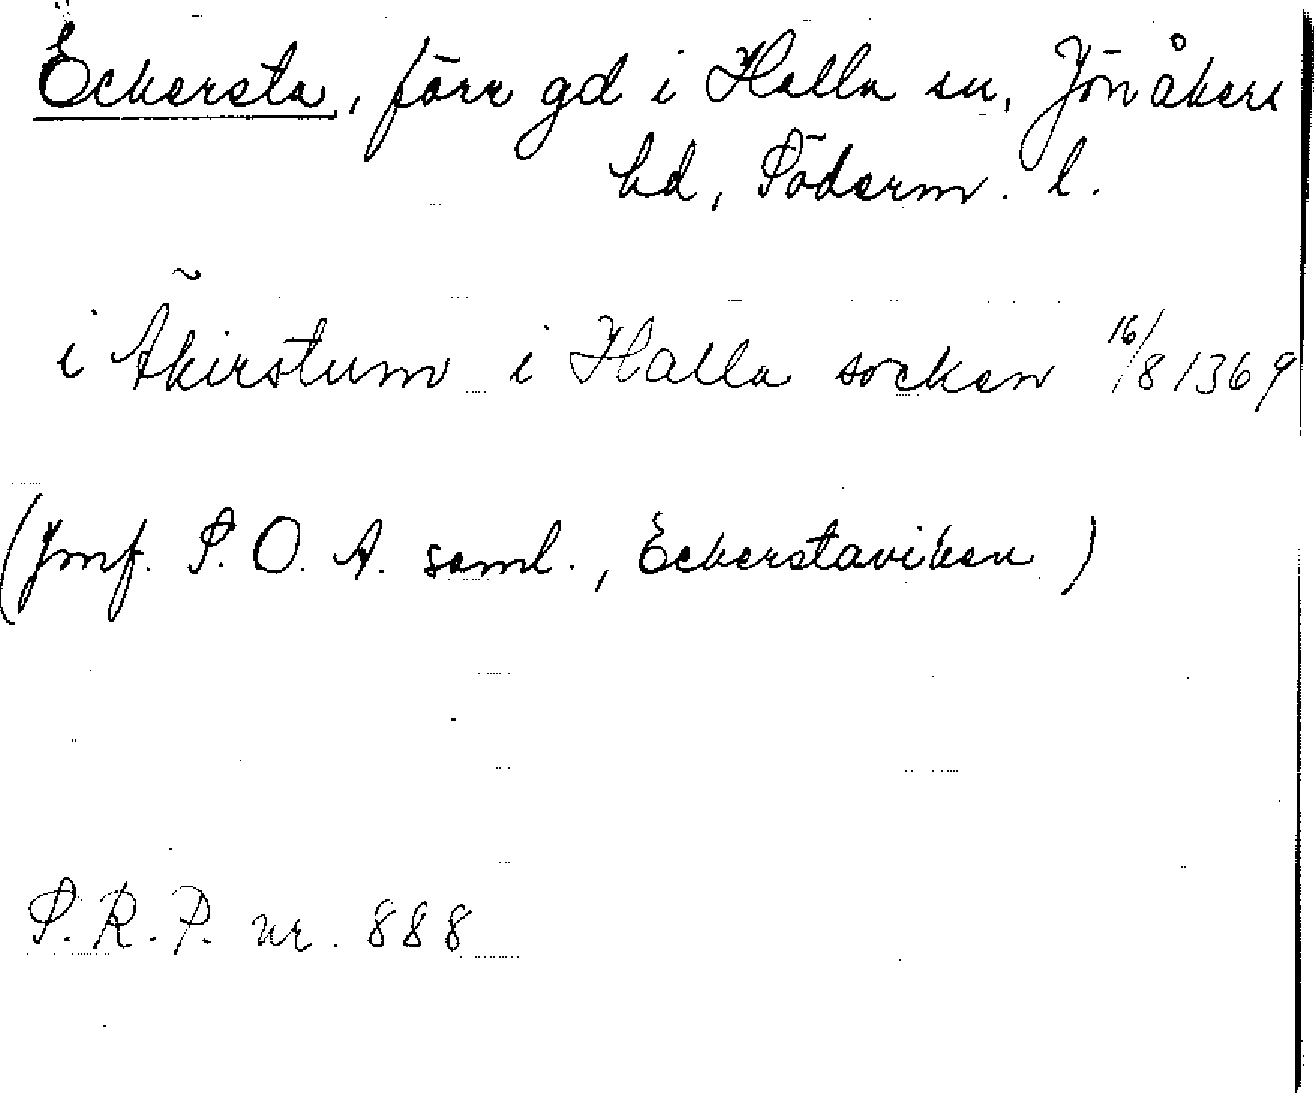 Eckersta, förr gd i Halla sn, Jönåkers
hd, Söderm. l.
i Ãkirstum i Halla socken 16/8 1369
(Jmf. S. O. A. saml., Eckerstaviken)
S. R. P. nr. 888